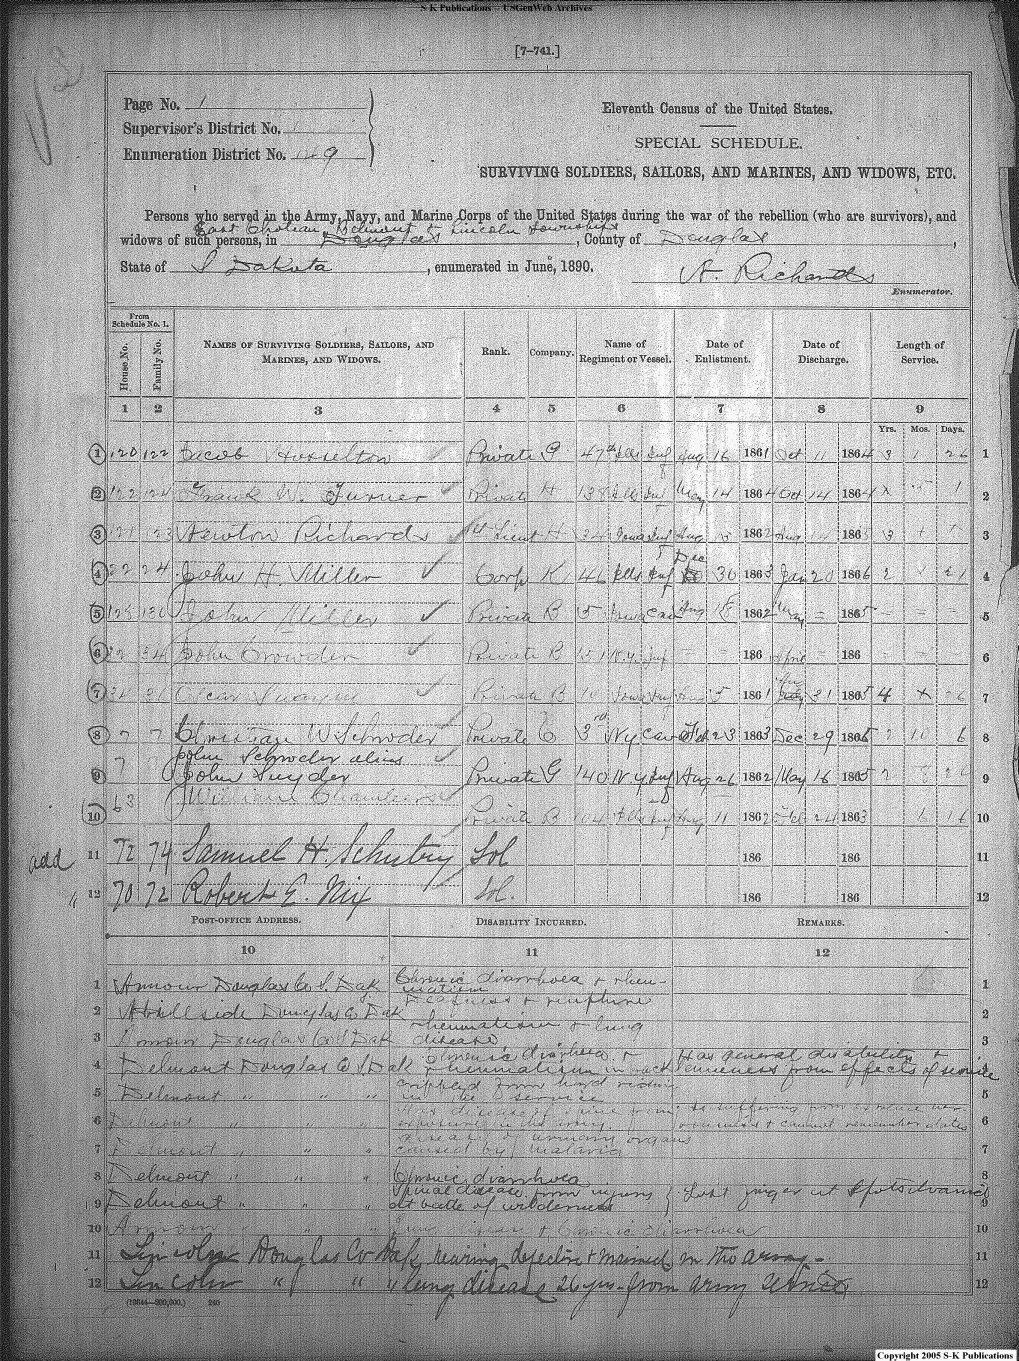 S-K Publications – USGenWeb Archives
[7–741.]
Page No. 1
Supervisor's District No.
Enumeration District No. 149
Eleventh Census of the United States.
SPECIAL SCHEDULE.
SURVIVING SOLDIERS, SAILORS, AND MARINES, AND WIDOWS, ETC.
Persons who served in the Army, Navy, and Marine Corps of the United States during the war of the rebellion (who are survivors), and
East Belmont & Lincoln Townships
widows of such persons, in Douglas, County of Douglas,
State of S Dakota, enumerated in June, 1890.
A. Richards
Enumerator.
From Schedule No. 1.
House No. Family No. NAMES OF SURVIVING SOLDIERS, SAILORS, AND MARINES, AND WIDOWS. Rank. Company. Name of Regiment or Vessel. Date of Enlistment. Date of Discharge. Length of Service.
1 2 3 4 5 6 7 8 9
Yrs. Mos. Days.
1 120 122 Jacob Hosselton Private G 47th Ills Inf Aug 16 1861 Oct 11 1864 3 1 26 1
2 122 124 Frank W. Turner Private H 138 Ills Inf May 14 1864 Oct 14 1864 2
3 Newton Richards 1st Lieut H 34 Iowa Inf Aug 15 1862 Aug 1865 3 3
Dec
4 22 24 John H. Miller Corp K 46 Ills Inf 30 1863 Jan 20 1866 2 21 4
5 128 130 John Miller Private B 5 Iowa Cav Aug 18 1862 May – 1865 – – – 5
6 32 34 John Crowden Private B 151 N.Y. Inf – – 186 April – 186 – – – 6
7 Oscar Private B 10 Iowa Inf 5 1861 31 1865 4 x 26 7
8 7 7 Christian W Schroder Private C 3rd N y Cav Feb 23 1863 Dec 29 1865 2 10 6 8
John Schroder alias
9 7 John Snyder Private G 140 N y Inf Aug 26 1862 May 16 1865 2 9
10 63 William Chambers Private B 104 Ills Inf Aug 11 1862 Feb 24 1863 6 16 10
add 11 72 74 Samuel H. Schutry Sol 186 186 11
" 12 70 72 Robert E. Nix Sol. 186 186 12
POST-OFFICE ADDRESS. DISABILITY INCURRED. REMARKS.
10 11 12
1 Armour Douglas Co S. Dak Chronic diarrhoea & rheumatism 1
2 Hillside Douglas Co Dak Deafness & rupture 2
3 Armour Douglas Co S Dak rheumatism & lung disease 3
4 Delmont Douglas Co S. Dak chronic diarrhea & rheumatism in back Has general disability & lameness from effects of service
5 Delmont " " " crippled from hard riding in the service 5
6 Delmont " " " Has disease of spine from exposure in the army. Is suffering from & cannot remember dates 6
7 Delmont " " disease of urinary organs caused by malaria 7
8 Delmont " " " Chronic diarrhoea 8
9 Delmont " " " Spinal disease from injury at battle of wilderness Lost finger at Spotsylvania 9
10 Armour " " " & Chronic diarrhoea 10
11 Lincoln Douglas Co Dak, hearing defective & maimed in the army – 11
12 Lincoln " " " lung disease 26 yrs – from army service 12
(18644—200,000.) 240
Copyright 2005 S-K Publications